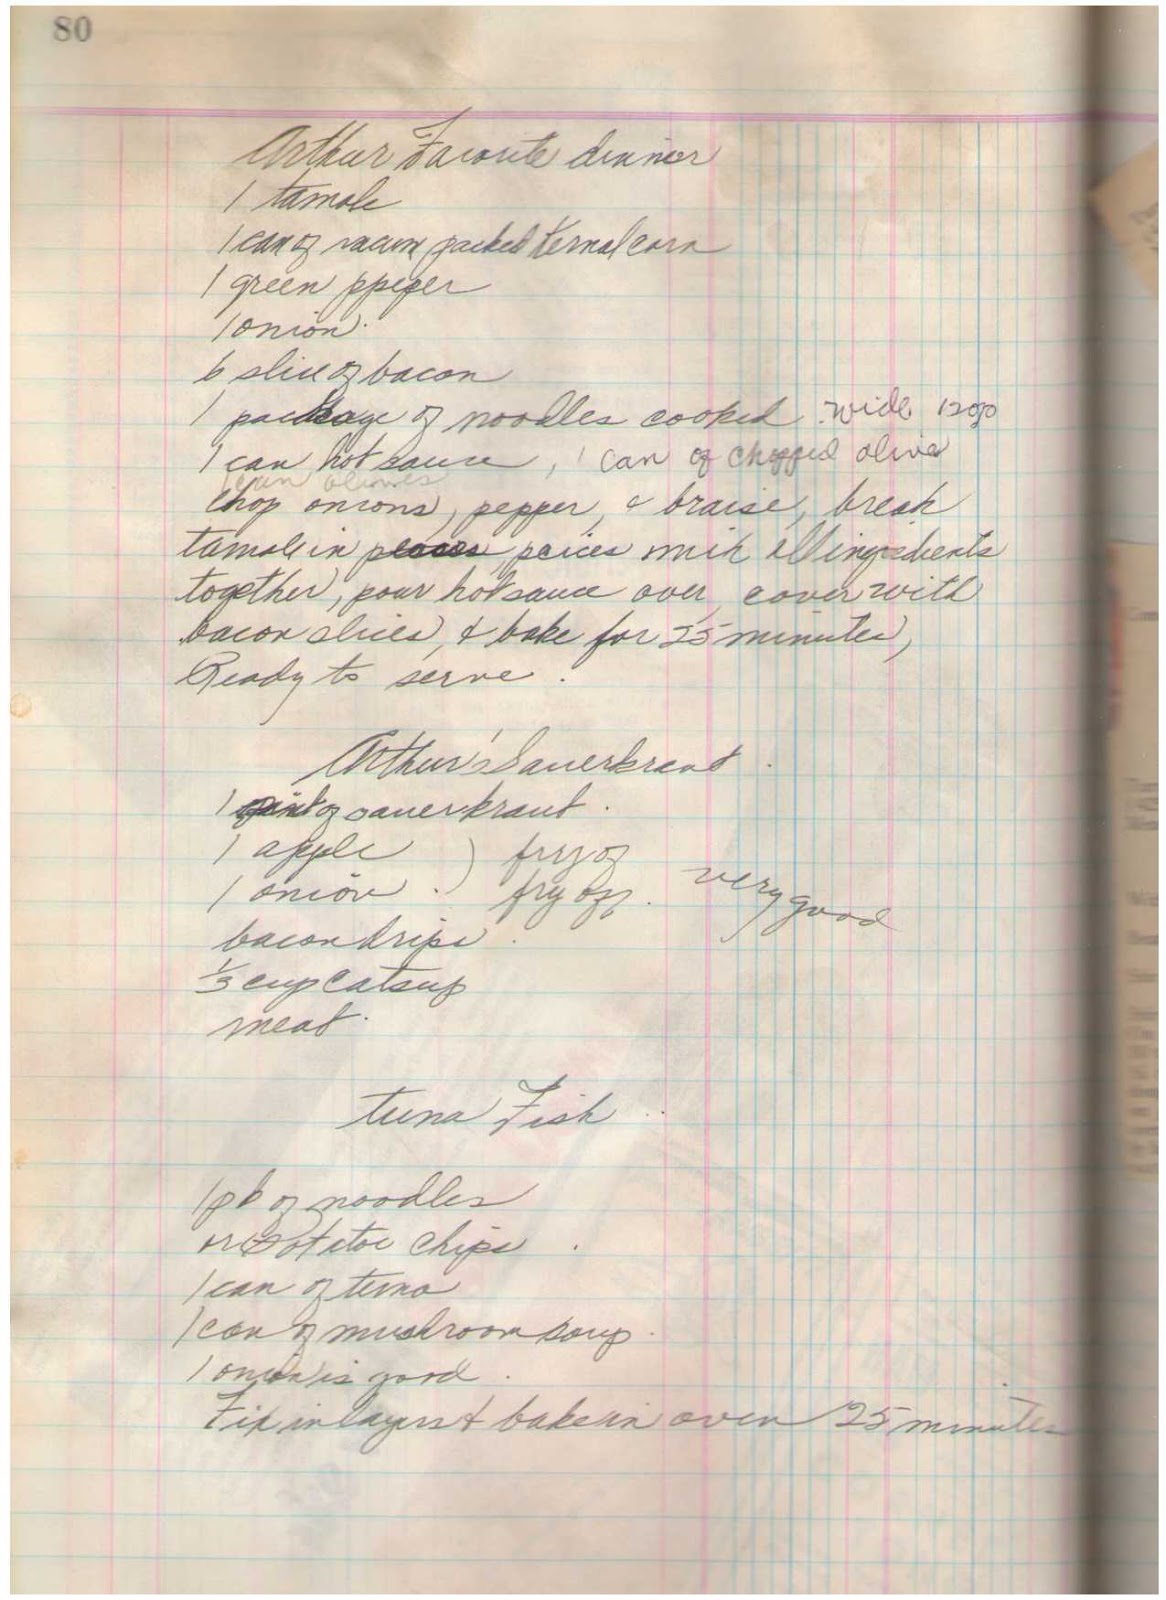 80
Arthur Favorite dinner
1 tamale
1 can of vacum packed kernal corn
1 green ppeper
1 onion.
6 slice of bacon
1 package of noodles cooked wide 12oz
1 can hot sauce, 1 can of chopped olive
1 can olives
Chop onions, pepper, & braise, break
tamale in peices mix all ingredients
together, pour hot sauce over, cover with
bacon slices, & bake for 25 minutes,
Ready to serve.
Arthur's Sauerkraut.
1 pint of sauerkraut.
1 apple ) fry of
1 onion . ) fry off. very good
bacon drips.
1/3 cup Catsup
meat.
tuna Fish ..
1 pk of noodles
or Potatoe Chips .
1 can of tuna
1 can of mushroom soup.
1 onion is good .
Fix in layers & bake in oven 25 minutes